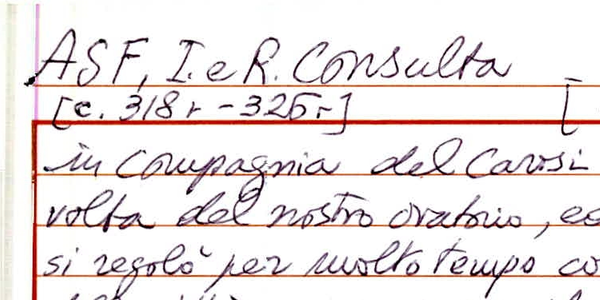 ASF, I. e R. Consulta
[c. 318r - 325r] [
in compagnia del Carosi
volta del nostro oratorio,
si regolò per molto tempo co